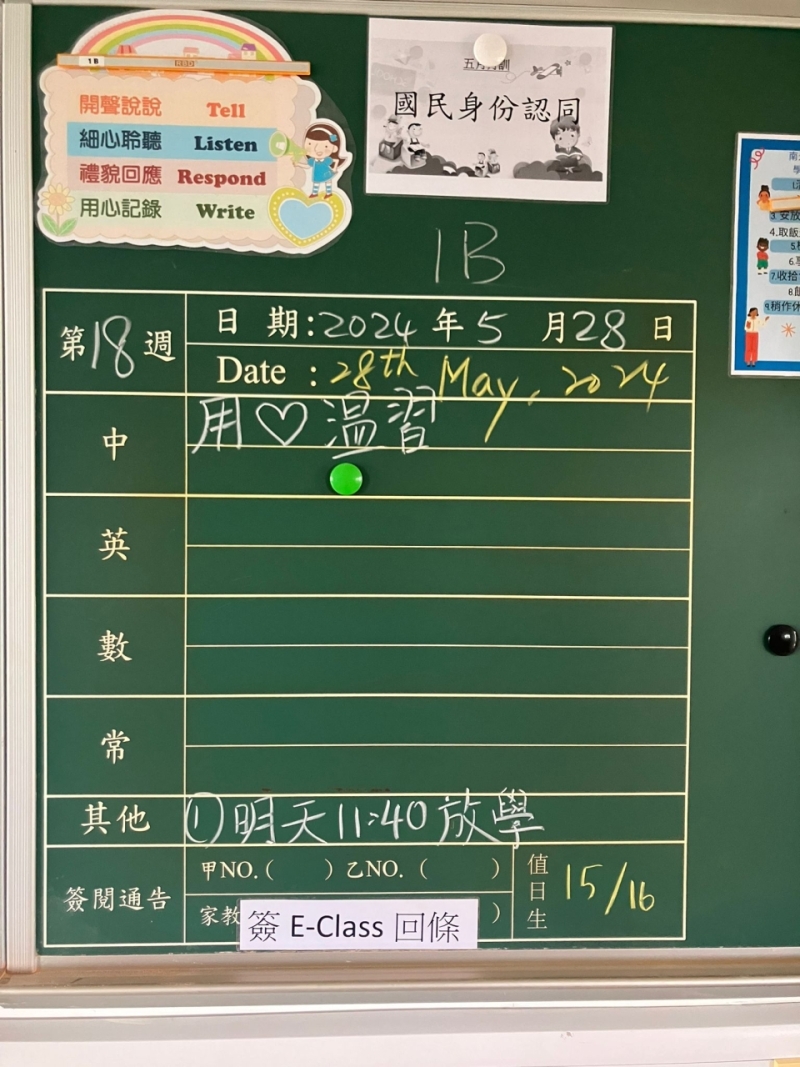 1B
開聲說說 Tell
細心聆聽 Listen
禮貌回應 Respond
用心記錄 Write
五月月訓
國民身份認同
1B
第18週
日 期:2024 年 5 月28 日
Date :28th May, 2024
中
用♡溫習
英
數
常
其他
①明天11:40放學
簽閱通告
甲NO.( ) 乙NO.( )
家教 )
簽 E-Class 回條
值日生
15/16
4.取飯
7.收拾